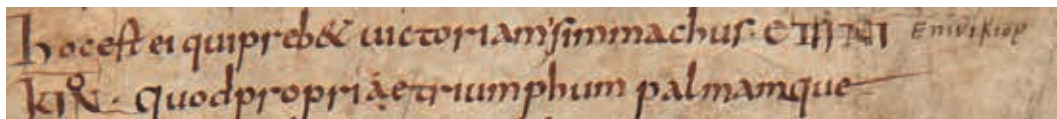 hocest ei quipreb& uictoriam simmachus· ЄΠΙΝΙ Επινίκιορ
ΚΙΟΝ · quodpropriaetriumphum palmamque